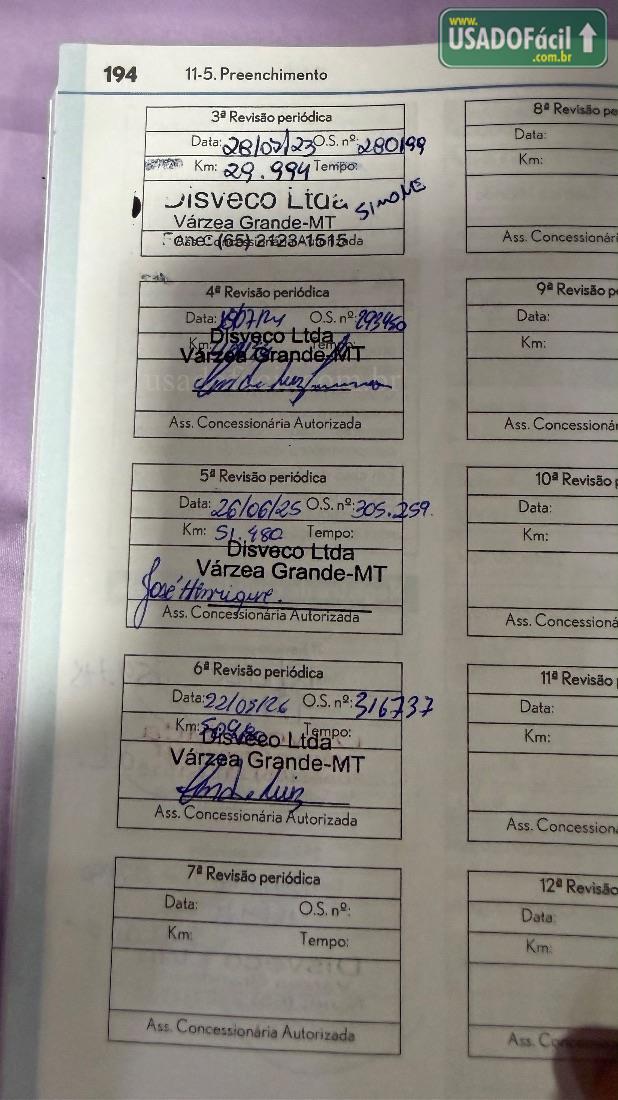 www.
USADOFácil
.com.br
194 11-5. Preenchimento
3ª Revisão periódica
Data: 28/07/23 O.S. nº: 280199
Km: 29.994 Tempo:
Disveco Ltda SIMONE
Várzea Grande-MT
Fone: (65) 2123-1515
Ass. Concessionária Autorizada
4ª Revisão periódica
Data: O.S. nº: 293450
Km: Tempo:
Disveco Ltda
Várzea Grande-MT
Ass. Concessionária Autorizada
5ª Revisão periódica
Data: 26/06/25 O.S. nº: 305.259
Km: 51.480 Tempo:
Disveco Ltda
Várzea Grande-MT
José Henrique.
Ass. Concessionária Autorizada
6ª Revisão periódica
Data: 22/05/26 O.S. nº: 316737
Km: Tempo:
Disveco Ltda
Várzea Grande-MT
Ass. Concessionária Autorizada
7ª Revisão periódica
Data: O.S. nº:
Km: Tempo:
Ass. Concessionária Autorizada
8ª Revisão pe
Data:
Km:
Ass. Concessionári
9ª Revisão p
Data:
Km:
Ass. Concessionár
10ª Revisão
Data:
Km:
Ass. Concessionár
11ª Revisão
Data:
Km:
Ass. Concession
12ª Revisão
Data:
Km:
Ass.